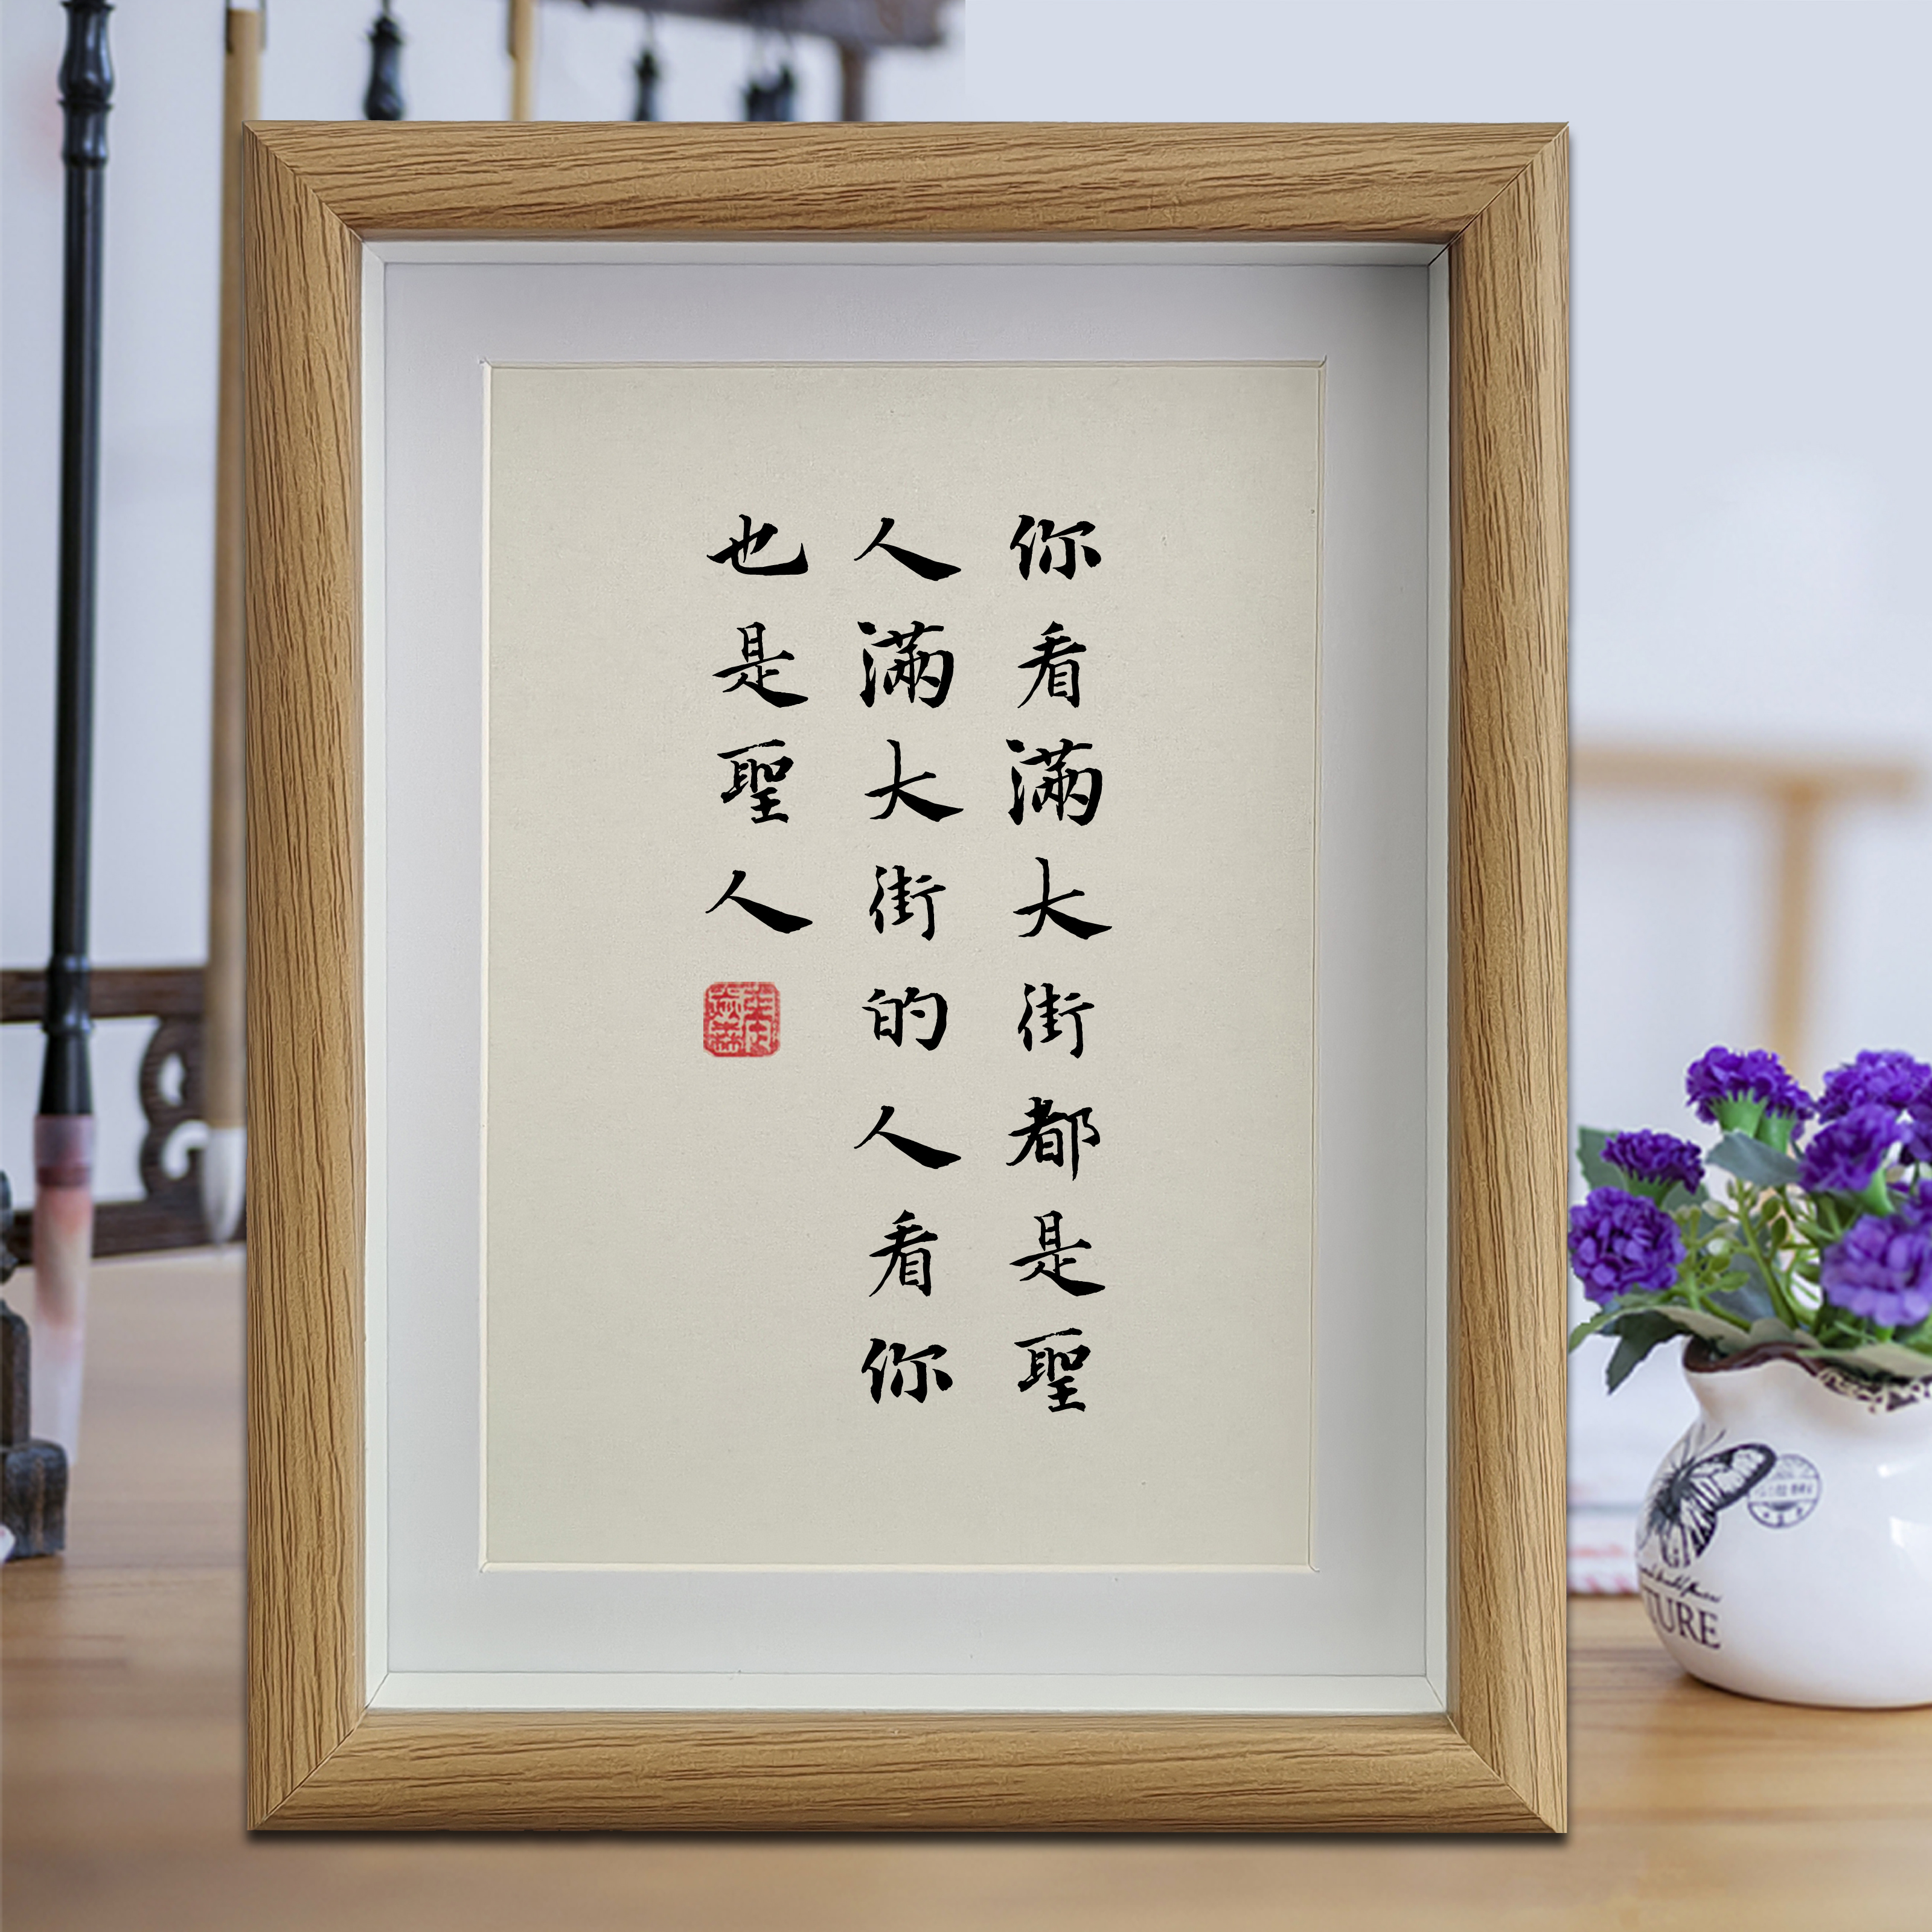 你看滿大街都是聖
人滿大街的人看你
也是聖人
TURE